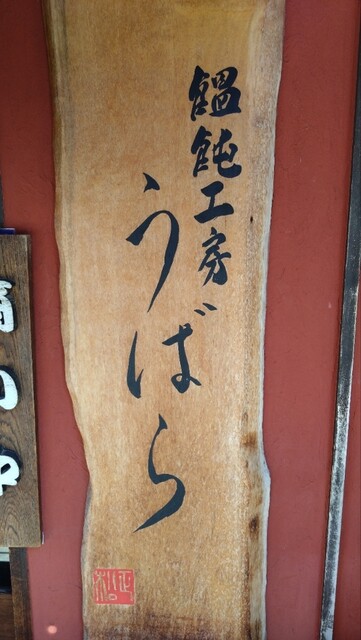 饂飩工房
うばら